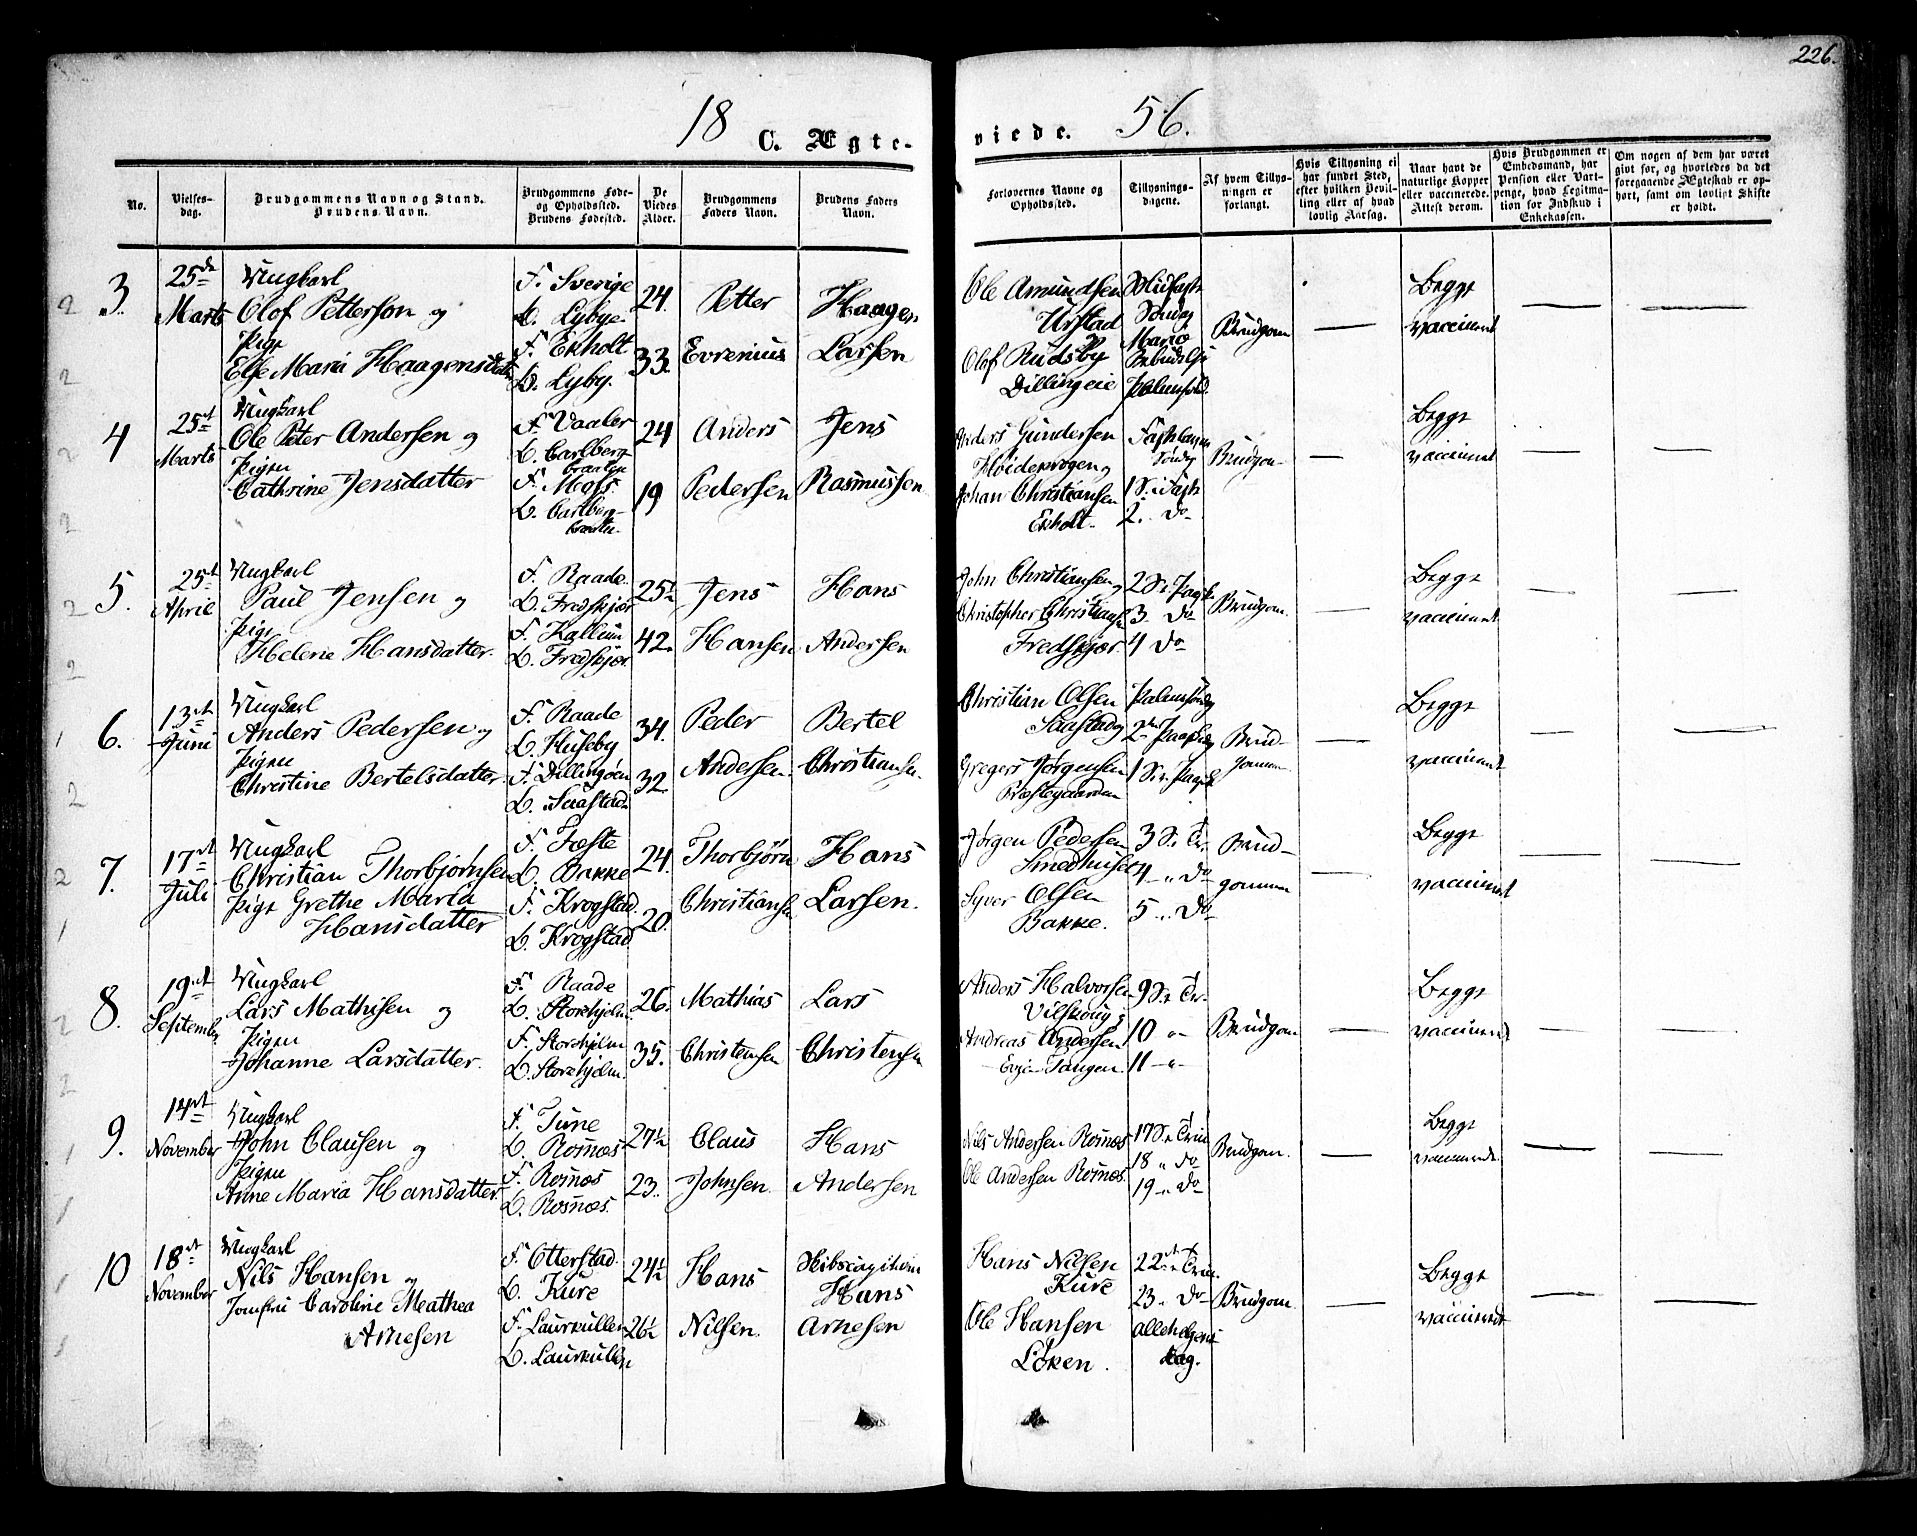 226.
18 C. Ægte-
viede. 56.
No.
Vielses-
dag.
Brudgommens Navn og Stand.
Brudens Navn.
Brudgommens Føde-
og Opholdssted.
Brudens Fødested.
De
Viedes
Alder.
Brudgommens
Faders Navn.
Brudens Faders
Navn.
Forlovernes Navne og
Opholdssted.
Tillysnings-
dagene.
Af hvem Tillys-
ningen er
forlangt.
Hvis Tillysning ei
har fundet Sted,
efter hvilken Bevil-
ling eller af hvad
lovlig Aarsag.
Naar havt de
naturlige Kopper
eller vaccinerede.
Attest derom.
Hvis Brudgommen er
Embedsmand, har
Pension eller Vart-
penge, hvad Legitima-
tion for Indskud i
Enkekassen.
Om nogen af dem har været
givt før, og hvorledes da det
foregaaende Ægteskab er op-
hørt, samt om lovligt Skifte
er holdt.
3.
25de
Marts
Ungkarl
Olof Petterson og
Pige
Else Maria Haagensdatter
F. Sverige
O. Lyby
F. Ekholt
O. Lyby.
24.
33.
Petter
Evrenius
Haagen
Larsen
Ole Amundsen
Urstad
Olof Rudsby
Dillingeie
Søndag
Mariæ
Palmesønd.
Brudgom
Begge
vaccineret
4
25de
Marts
Ungkarl
Ole Peter Andersen og
Pigen
Cathrine Jensdatter
F. Vaaler
O. Carlberg-
braaten
F. Moss.
O. Carlberg-
braaten.
24
19
Anders
Pedersen
Jens
Rasmussen
Anders Gundersen
Høidekrogen og
Johan Christiansen
Ekholt.
Fastelavns
Søndag
1 S. i Faste
2. - Do
Brudgom
Begge
vaccineret
5.
25de
April
Ungkarl
Paul Jensen og
Pige
Helene Hansdatter.
F. Raade.
O. Fredskjær
F. Kallum
O. Fredskjær.
25½
42.
Jens
Hansen
Hans
Andersen
John Christiansen og
Christopher Christiansen
Fredskjær.
2 S. e. Paaske
3 Do
4 Do
Brudgom.
Begge
vaccineret
6.
13de
Juni
Ungkarl
Anders Pedersen og
Pigen
Christine Bertelsdatter
F. Raade
O. Huseby
F. Dillingøen
O. Saastad
34.
32
Peder
Andersen.
Bertel
Christiansen
Christian Olsen
Saastad og
Gregers Jørgensen
Præstegaarden
Palmesøndag
2den Paaskedag
1 S. e. Paaske
Brud-
gommen
Begge
vaccineret
7.
17de
Juli
Ungkarl
Christian Thorbjørnsen
Pige Grethe Maria
Hansdatter
F. Fæste
O. Bakke
F. Krogstad.
O. Krogstad
24.
20.
Thorbjørn
Christiansen
Hans
Larsen.
Jørgen Pedersen
Smedhuset
Syver Olsen
Bakke.
3 S. e. Tr.
4 - " Do
5 - " Do
Brud-
gommen
Begge
vaccineret
8.
19de
September
Ungkarl
Lars Mathisen og
Pigen
Johanne Larsdatter.
F. Raade
O. Storehjelm
F. Storehjelm
O. Storehjelm.
26.
35.
Mathias
Christensen
Lars
Christensen
Anders Halvorsen
Vilskoug
Andreas Andersen
Tangen.
9 S. e. Tr.
10 "
11 - "
Brudgom
Begge
vaccineret
9.
14de
November
Ungkarl
John Clausen og
Pigen
Anne Maria Hansdatter
F. Tune
O. Rosnæs
F. Rosnæs
O. Rosnæs.
27½
23.
Claus
Johnsen.
Hans
Andersen
Nils Andersen Rosnæs
Ole Andersen Rosnæs
17 S. e. Trin.
18 " Do
19 - " Do
Brudgom.
Begge
vaccinerede.
10
18de
November
Ungkarl
Nils Hansen og
Jomfru Caroline Meathea
Arnesen
F. Otterstad.
O. Kure
F. Laurkullen
O. Laurkullen
24½
26½
Hans
Nilsen.
Skibscapitain
Hans
Arnesen
Hans Nilsen
Kure
Ole Hansen
Løken.
22 S. e. Trin.
23 " Do
Allehelgens
dag.
Brudgom
Begge
vaccineret